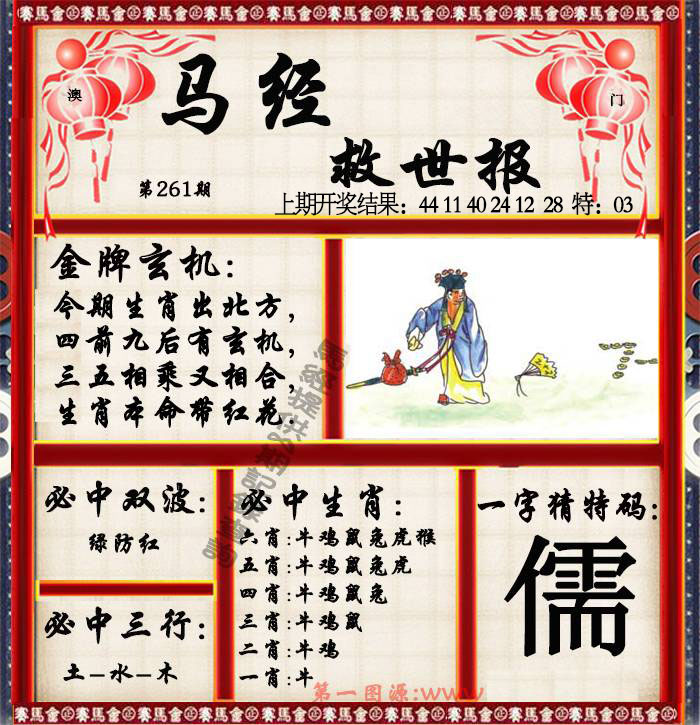 賽馬會 賽馬會 賽馬會 賽馬會 賽馬會 賽馬會
澳
门
马经
救世报
第261期
上期开奖结果：44 11 40 24 12 28 特：03
金牌玄机：
今期生肖出北方，
四前九后有玄机，
三五相乘又相合，
生肖本命带红花.
必中双波：
绿防红
必中三行：
土–水–木
必中生肖：
六肖:牛鸡鼠兔虎猴
五肖:牛鸡鼠兔虎
四肖:牛鸡鼠兔
三肖:牛鸡鼠
二肖:牛鸡
一肖:牛
一字猜特码:
儒
第一图源:www